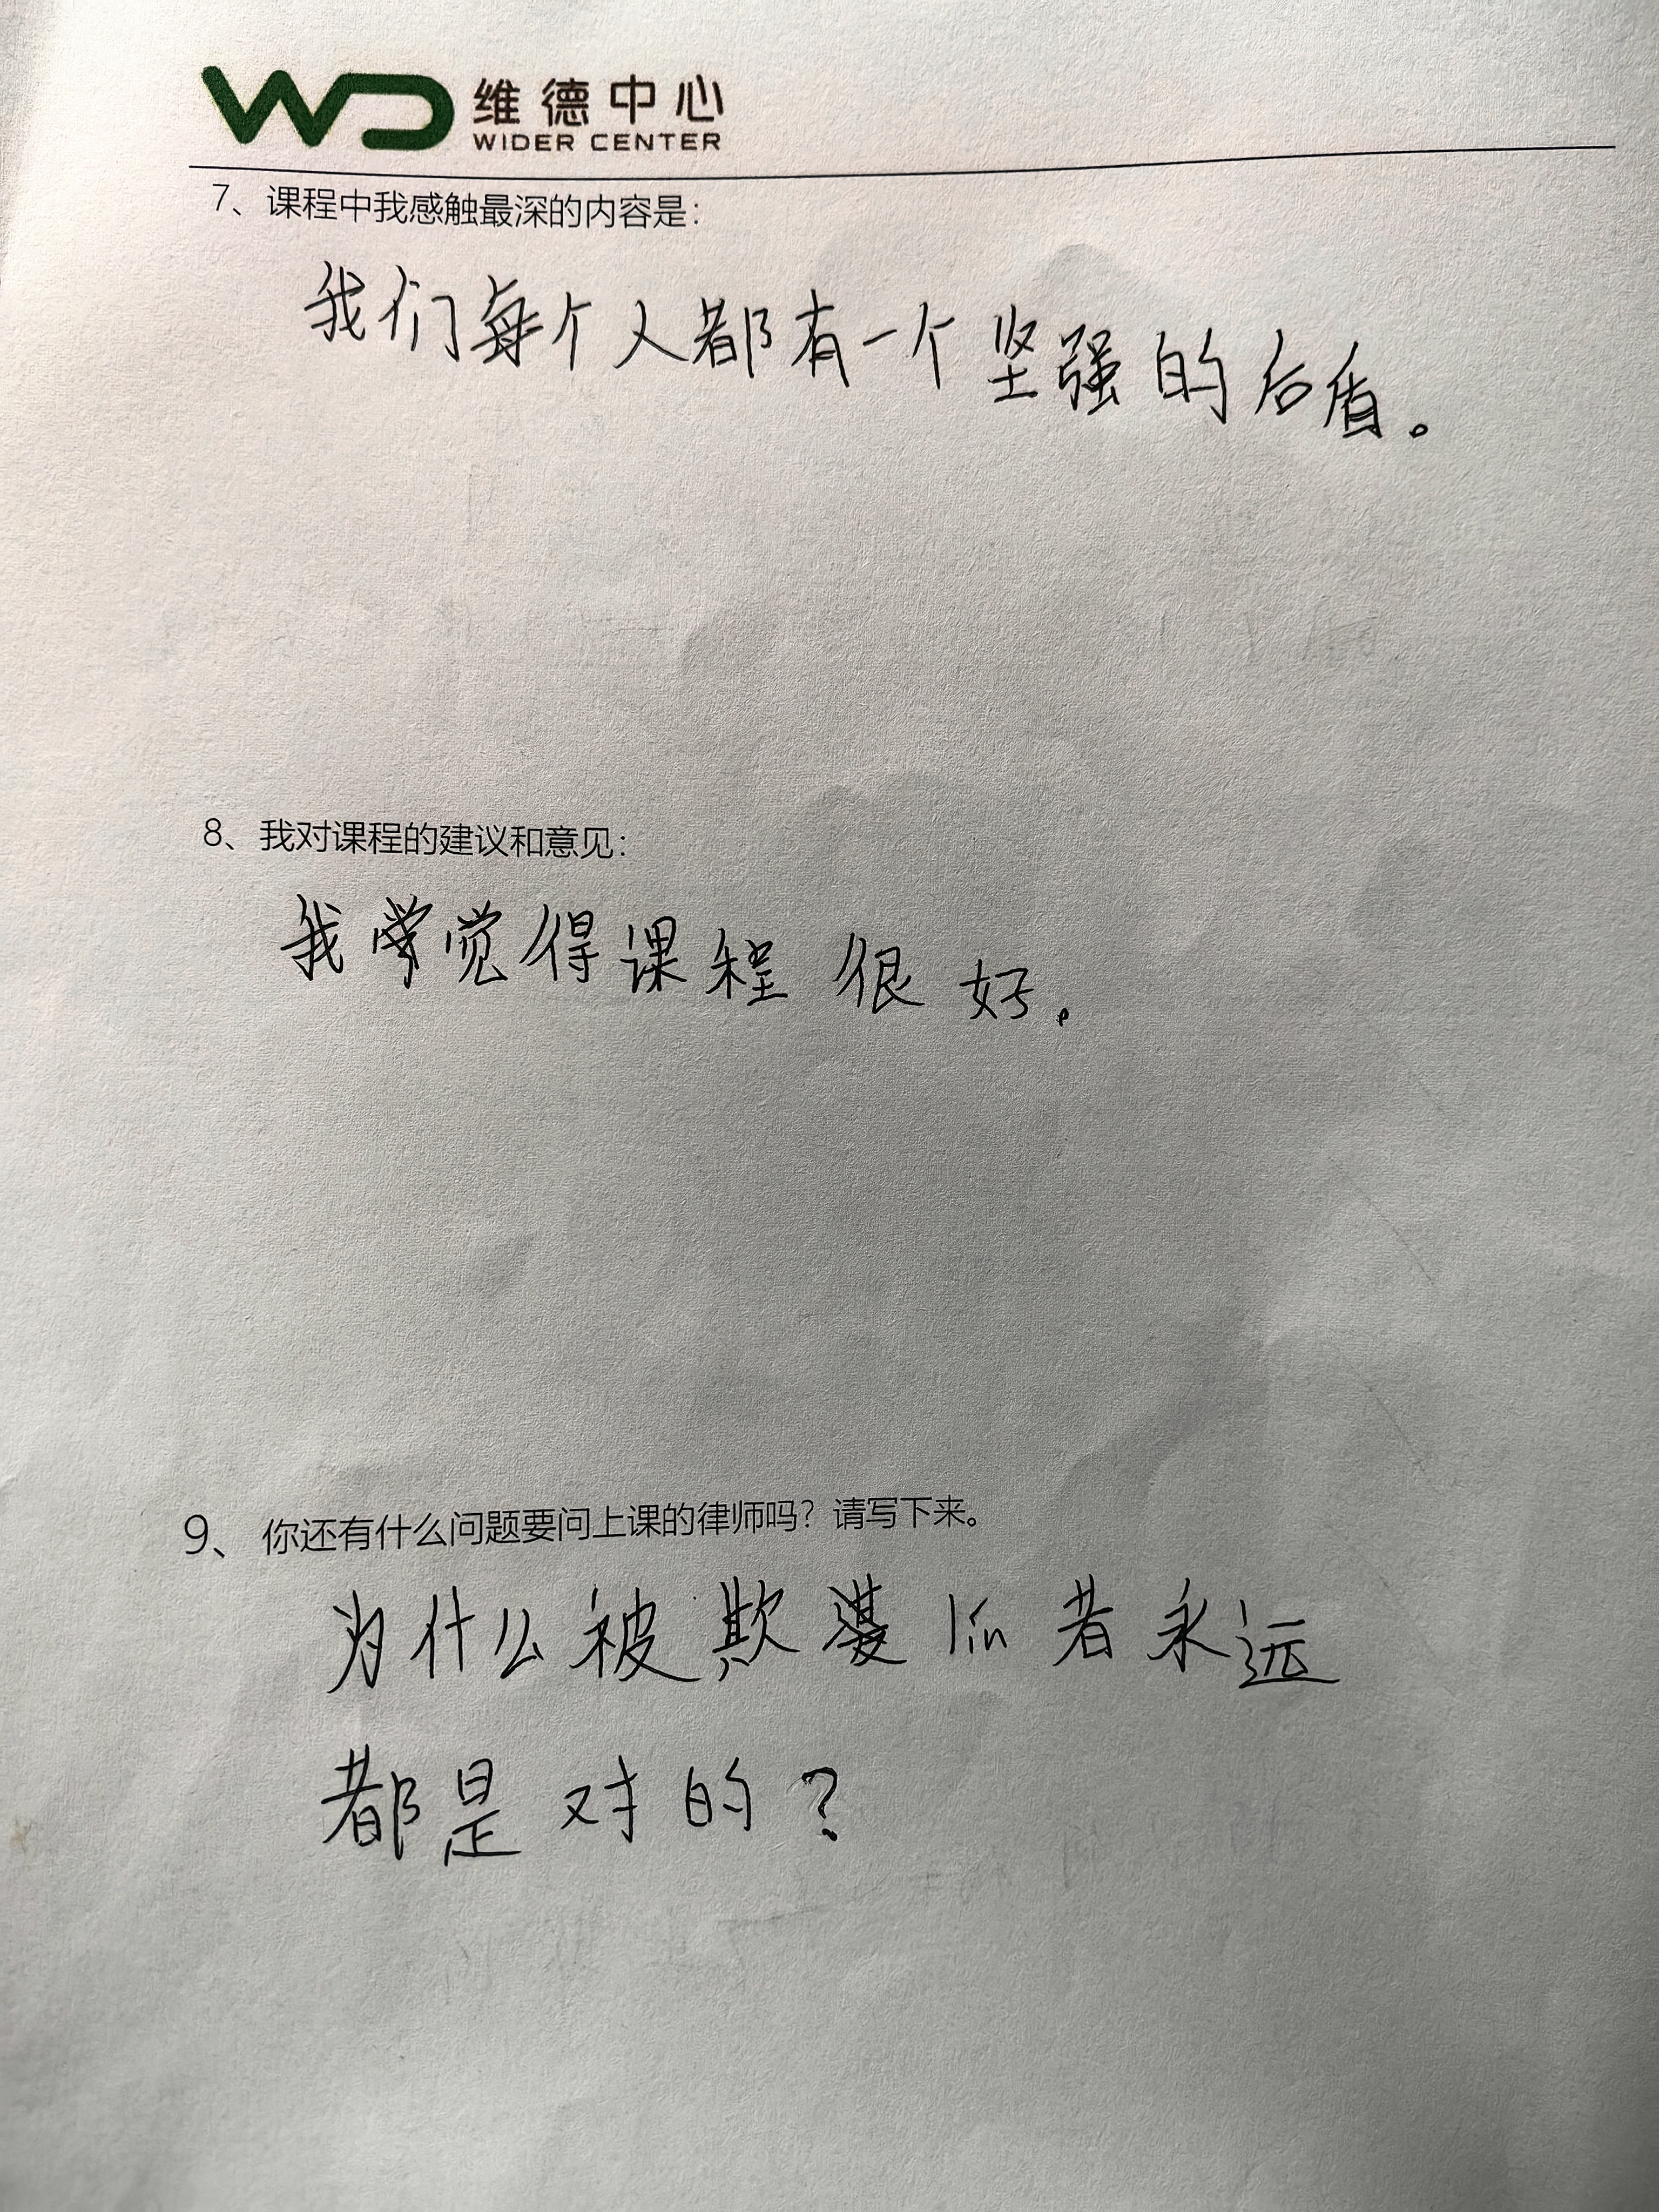 WD 维德中心
WIDER CENTER
7、课程中我感触最深的内容是：
我们每个人都有一个坚强的后盾。
8、我对课程的建议和意见：
我觉得课程很好。
9、你还有什么问题要问上课的律师吗？请写下来。
为什么被欺 lín 者永远
都是对的？